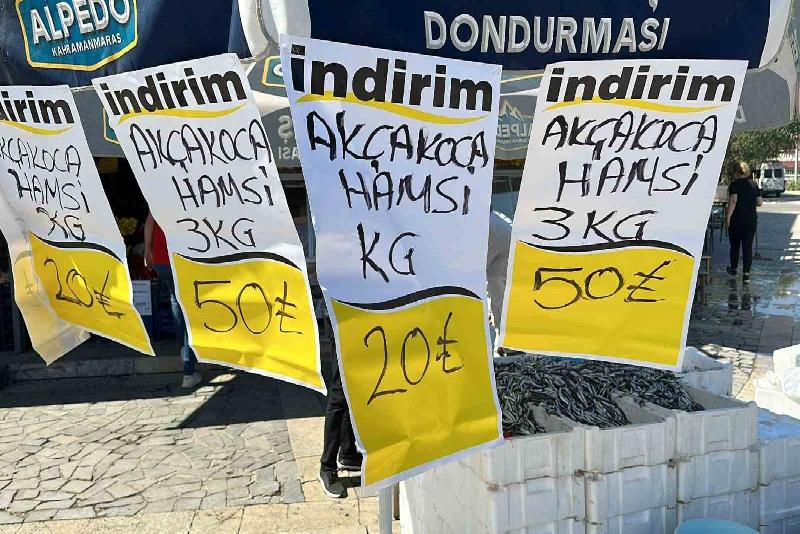 ALPEDO
KAHRAMANMARAŞ
DONDURMASI
indirim
AKÇAKOCA
HAMSİ
KG
20₺
indirim
AKÇAKOCA
HAMSİ
3KG
50₺
indirim
AKÇAKOCA
HAMSİ
KG
20₺
indirim
AKÇAKOCA
HAMSİ
3KG
50₺
ALPEDO